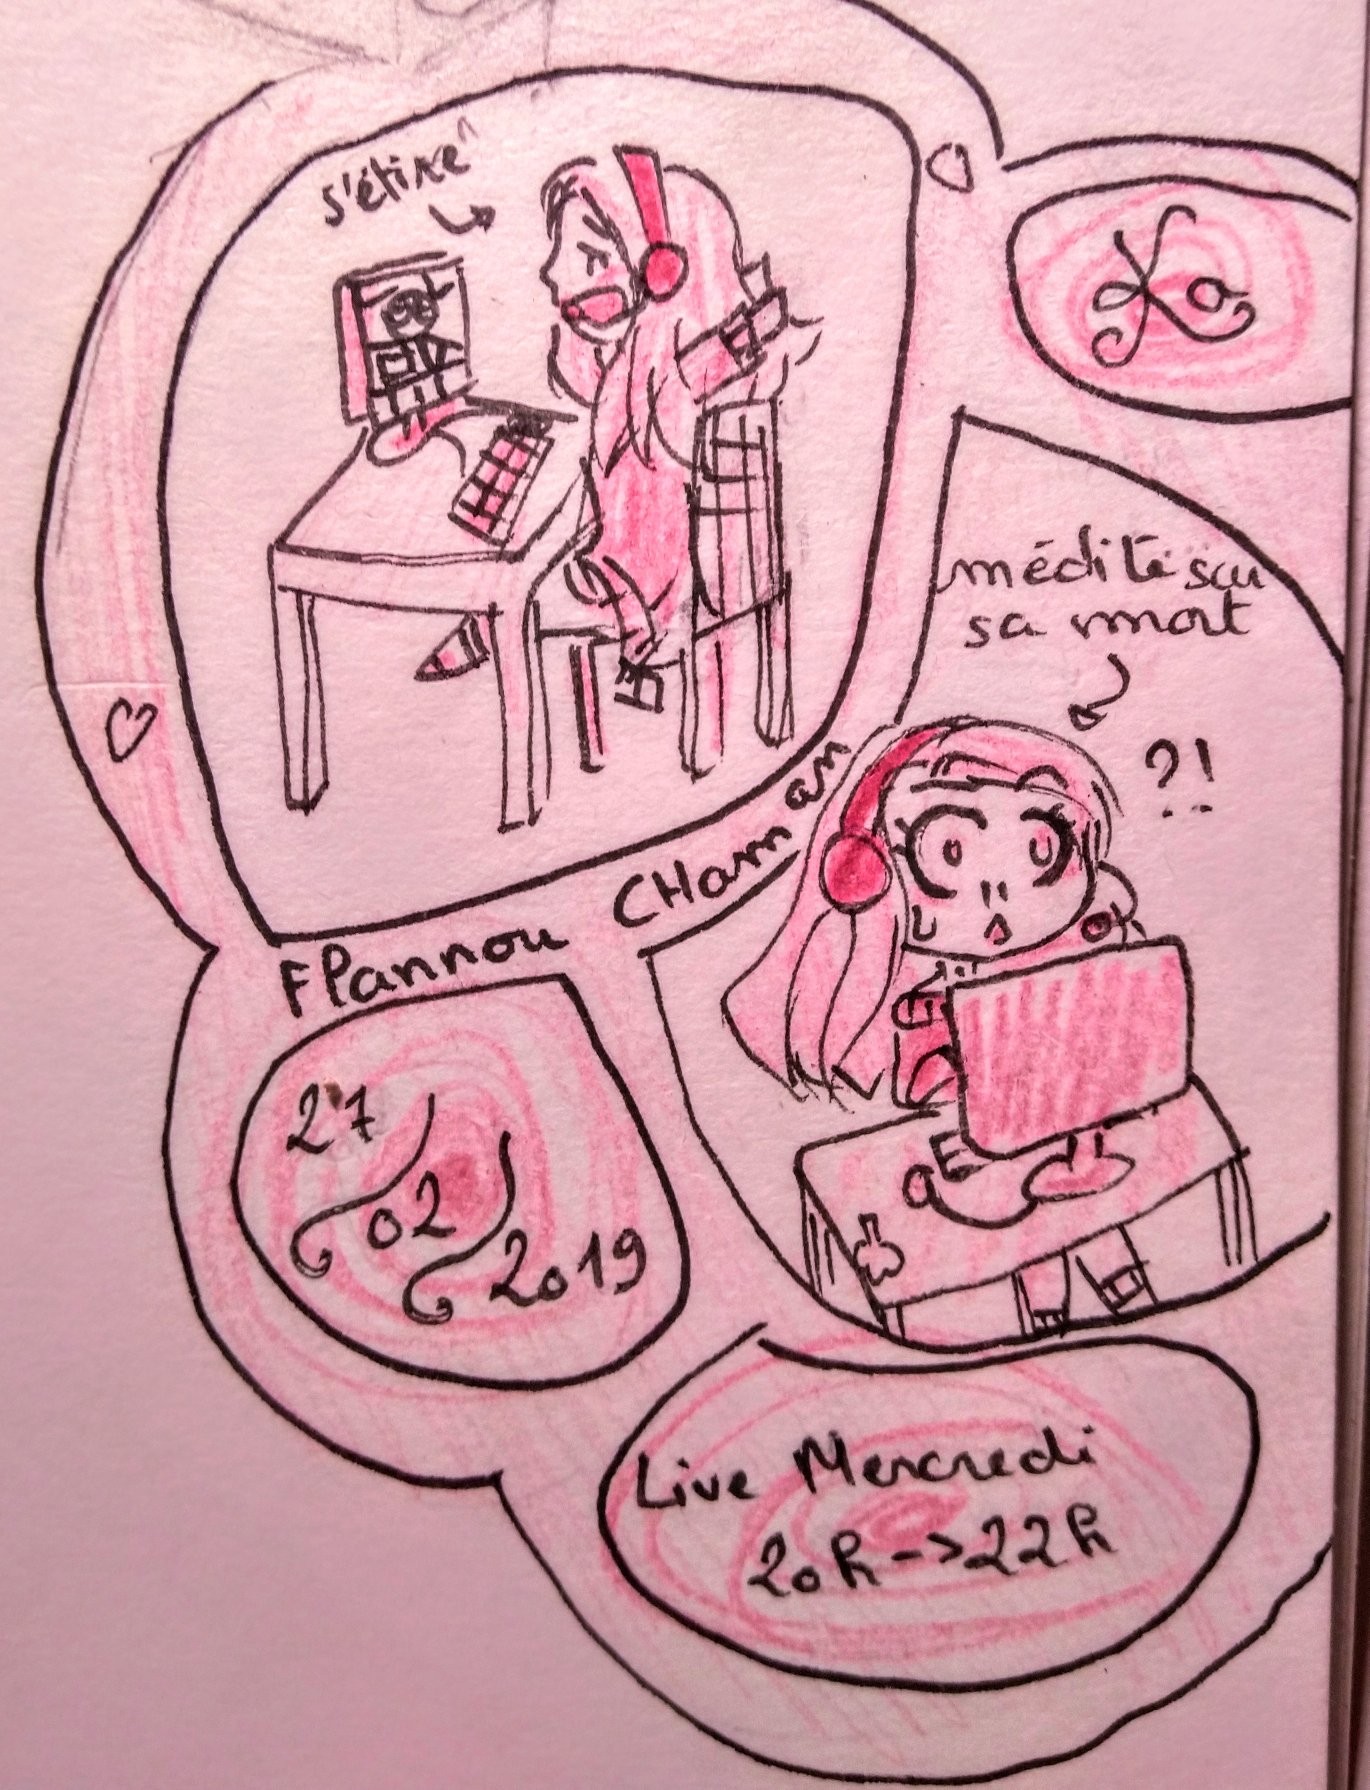 s'étire
médite sur
sa mort
?!
FPannou CHaman
27
02
2019
Live Mercredi
20h->22h